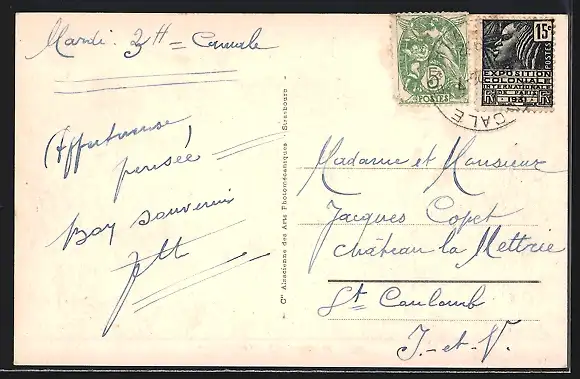 Mardi. 3H = Cancale
Affectueuse
pensée
Bon souvenir
5
POSTES
15c
POSTES
EXPOSITION
COLONIALE
INTERNATIONALE
DE PARIS
1931
CALE
Cie Alsacienne des Arts Photomécaniques - Strasbourg
Madame et Monsieur
Jacques Copet
château la Mettrie
St Coulomb
I.-et-V.